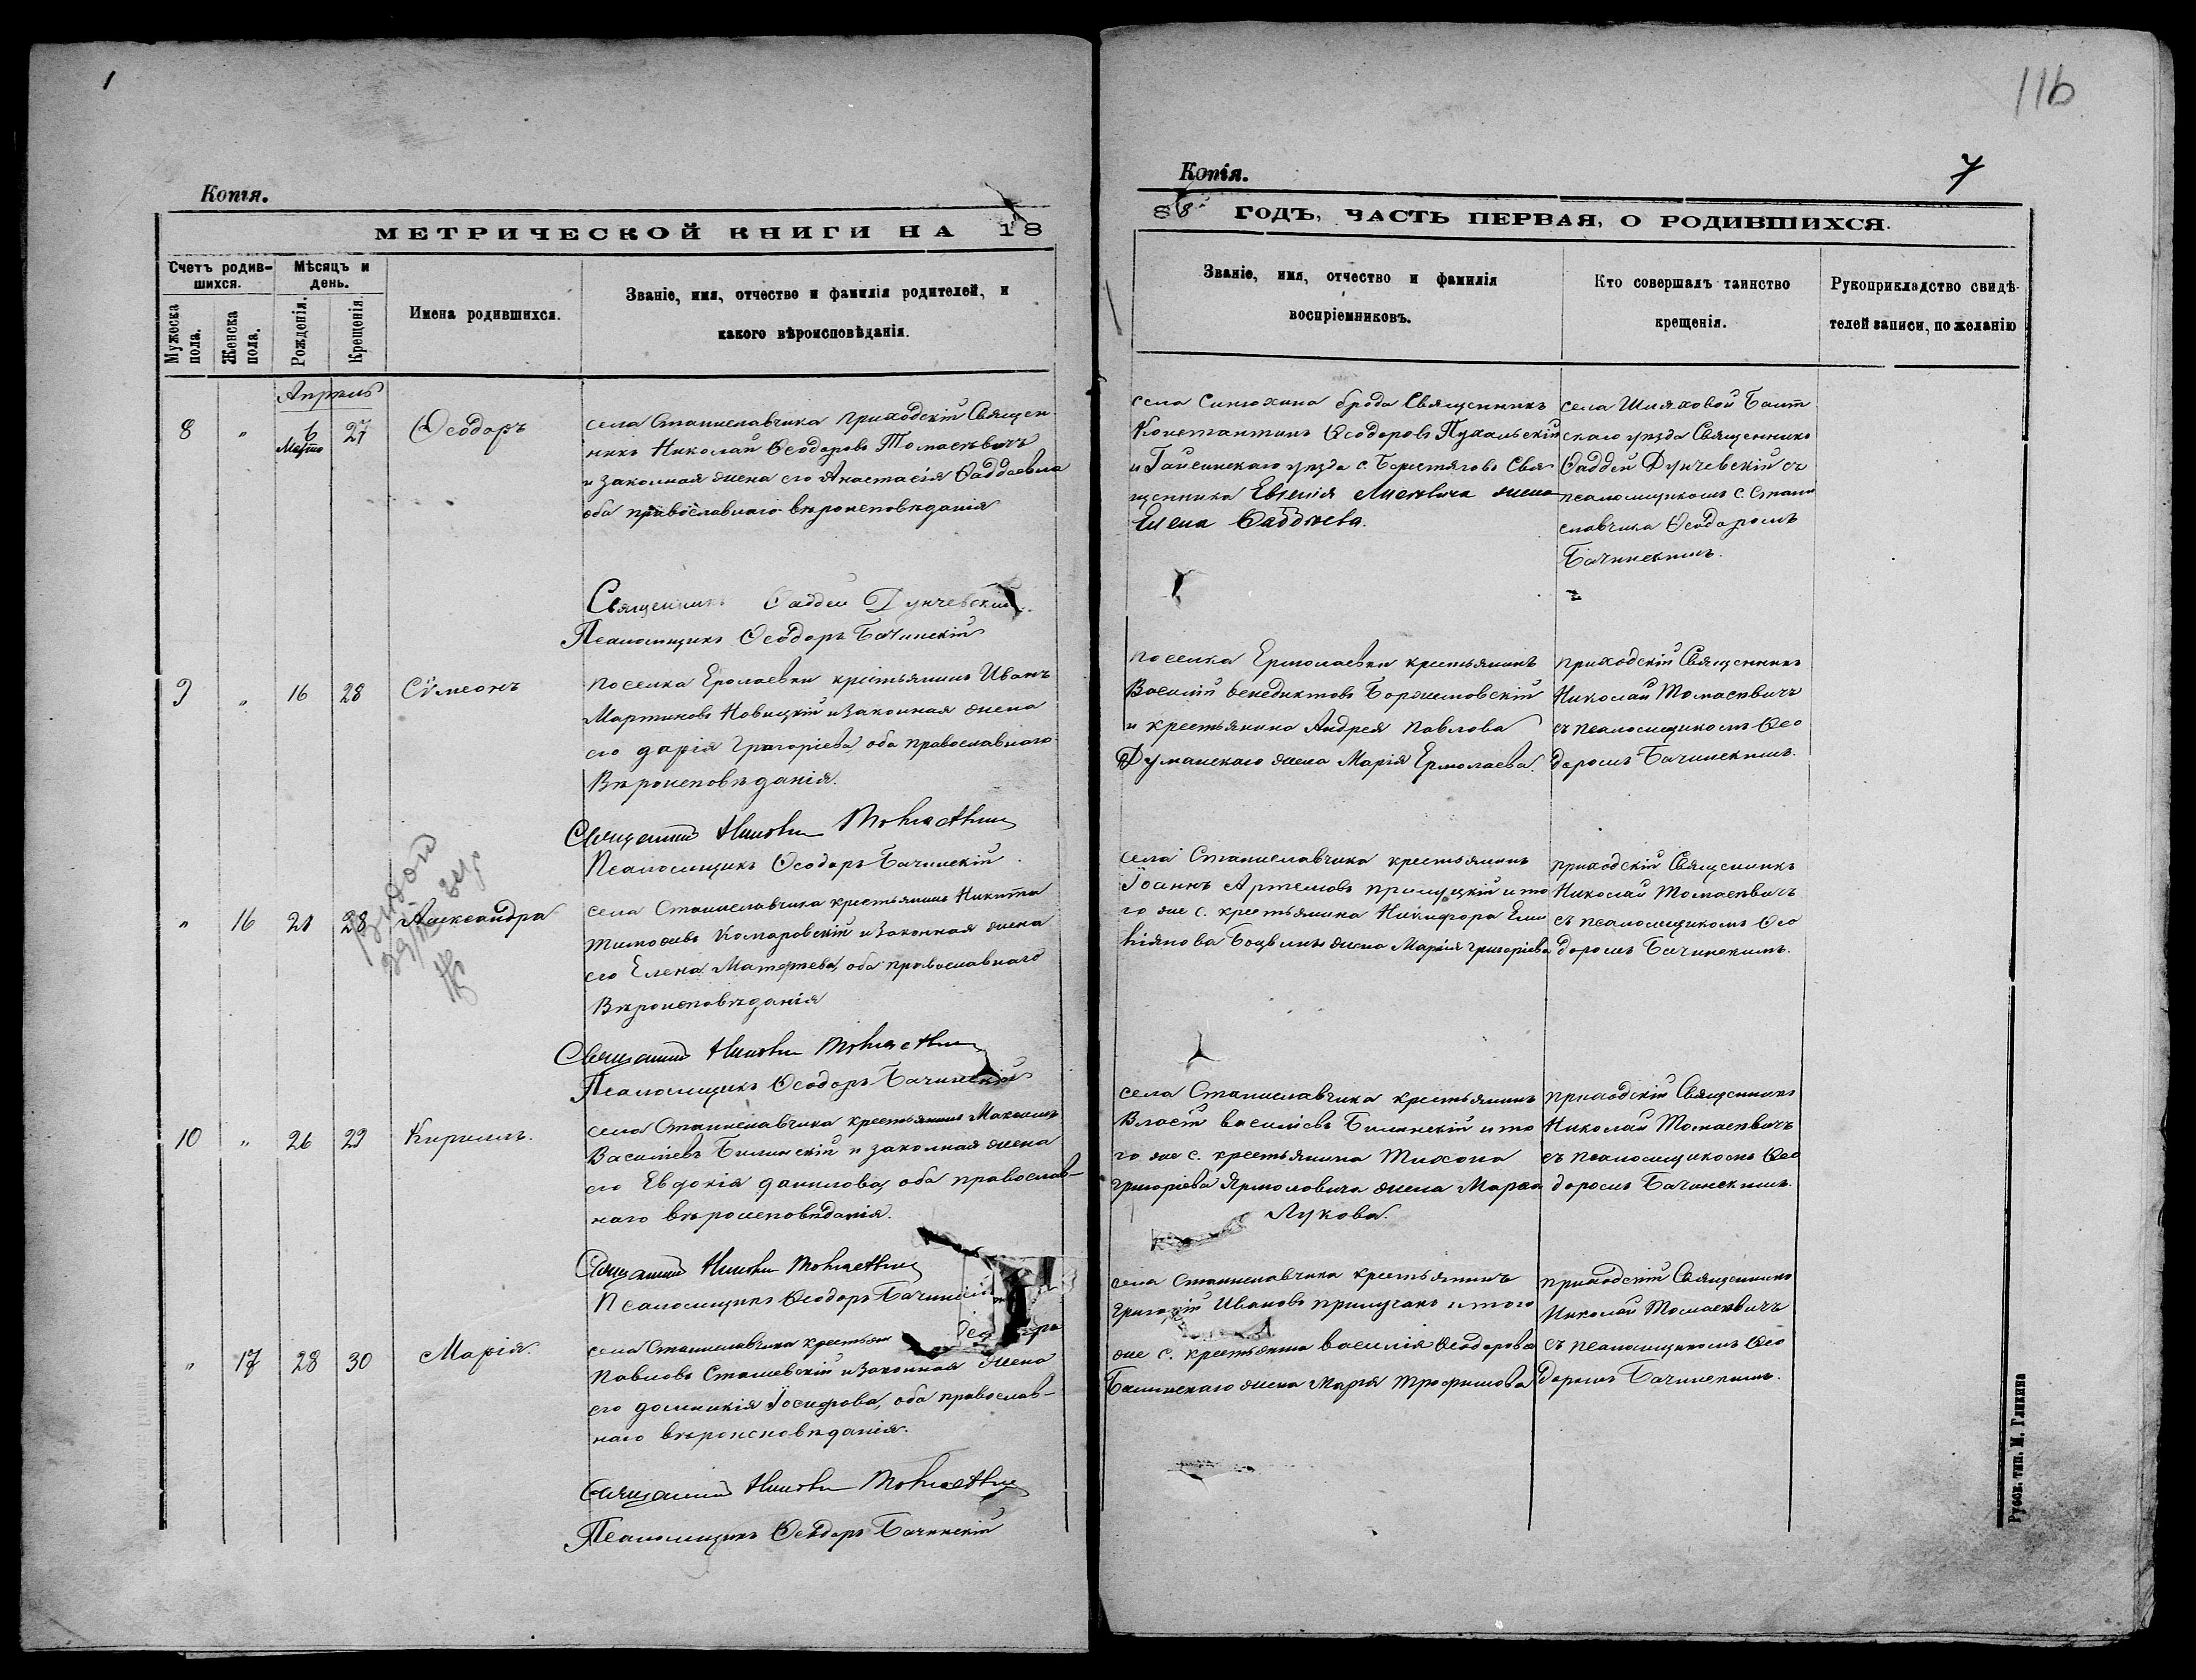 1
116
Копія.
МЕТРИЧЕСКОЙ КНИГИ НА 18
Счетъ родив-
шихся.
Мужеска
пола.
Женска
пола.
Мѣсяцъ и
день.
Рожденія.
Крещенія.
Имена родившихся.
Званіе, имя, отчество и фамилія родителей, и
какого вѣроисповѣданія.
Апрель
8 " 6 27 Ѳеодоръ
Марта
села Станиславчика Приходскій Священ
никъ Николай Ѳеодоровъ Томасѣвичъ
и законная жена его Анастасія Ѳаддеевна
оба православнаго вѣроисповѣданія
Священникъ Ѳаддей Дунчевскій
Псаломщикъ Ѳеодоръ Бачинскій
9 " 16 28 Сѵмеонъ
поселка Ермолаевки крестьянинъ Иванъ
Мартиновъ Новицкій и законная жена
его Дарія Григоріева, оба православнаго
Вѣроисповѣданія.
Священникъ Николай Томасѣвичъ
Псаломщикъ Ѳеодоръ Бачинскій
" 16 21 28 Александра
села Станиславчика крестьянинъ Никита
Тимоѳеевъ Комаровскій и законная жена
его Елена Матѳеева, оба православнаго
Вѣроисповѣданія
Священникъ Николай Томасѣвичъ
Псаломщикъ Ѳеодоръ Бачинскій
10 " 26 29 Кириллъ.
села Станиславчика крестьянинъ Максимъ
Василіевъ Билинскій и законная жена
его Евдокія Данилова, оба православ-
наго вѣроисповѣданія.
Священникъ Николай Томасѣвичъ
Псаломщикъ Ѳеодоръ Бачинскій
" 17 28 30 Марія.
села Станиславчика крестьян
Павловъ Сташевскій и законная жена
его Домникія Іосифова, оба православ-
наго вѣроисповѣданія.
Священникъ Николай Томасѣвичъ
Псаломщикъ Ѳеодоръ Бачинскій
Копія.
7
88 ГОДЪ, ЧАСТЬ ПЕРВАЯ, О РОДИВШИХСЯ.
Званіе, имя, отчество и фамилія
воспріемниковъ.
Кто совершалъ таинство
крещенія.
Рукоприкладство свидѣ-
телей записи, по желанію
села Синюхина брода Священникъ
Константинъ Ѳеодоровъ Пухальскій
и Гайсинскаго уѣзда с. Берестягово Свя
щенника Евгенія жена
Елена Ѳаддѣева.
села Шляховой Балт
скаго уѣзда Священникъ
Ѳаддей Дунчевскій съ
псаломщикомъ с. Стани
славчика Ѳеодоромъ
Бачинскимъ.
поселка Ермолаевки крестьянинъ
Василій Бенедиктовъ
и крестьянина Андрея Павлова
Думанскаго жена Марія Ермолаева.
приходскій Священникъ
Николай Томасѣвичъ
съ псаломщикомъ Ѳео
доромъ Бачинскимъ.
села Станиславчика крестьянинъ
Іоаннъ Артемовъ Прилуцкій и то
го же с. крестьянина Никифора Еми
ліянова жена Марія Григоріева
приходскій Священникъ
Николай Томасѣвичъ
съ псаломщикомъ Ѳео
доромъ Бачинскимъ.
села Станиславчика крестьянинъ
Власій Василіевъ Билинскій и то
го же с. крестьянина Тихона
Григоріева Ярмоловича жена Марѳа
Лукова.
приходскій Священникъ
Николай Томасѣвичъ
съ псаломщикомъ Ѳео
доромъ Бачинскимъ.
села Станиславчика крестьянинъ
Григорій Ивановъ и того
же с. крестьянина Василія Ѳеодорова
Билинскаго жена Марія Трофимова
приходскій Священникъ
Николай Томасѣвичъ
съ псаломщикомъ Ѳео
доромъ Бачинскимъ.
Русск. тип. М. Гликина